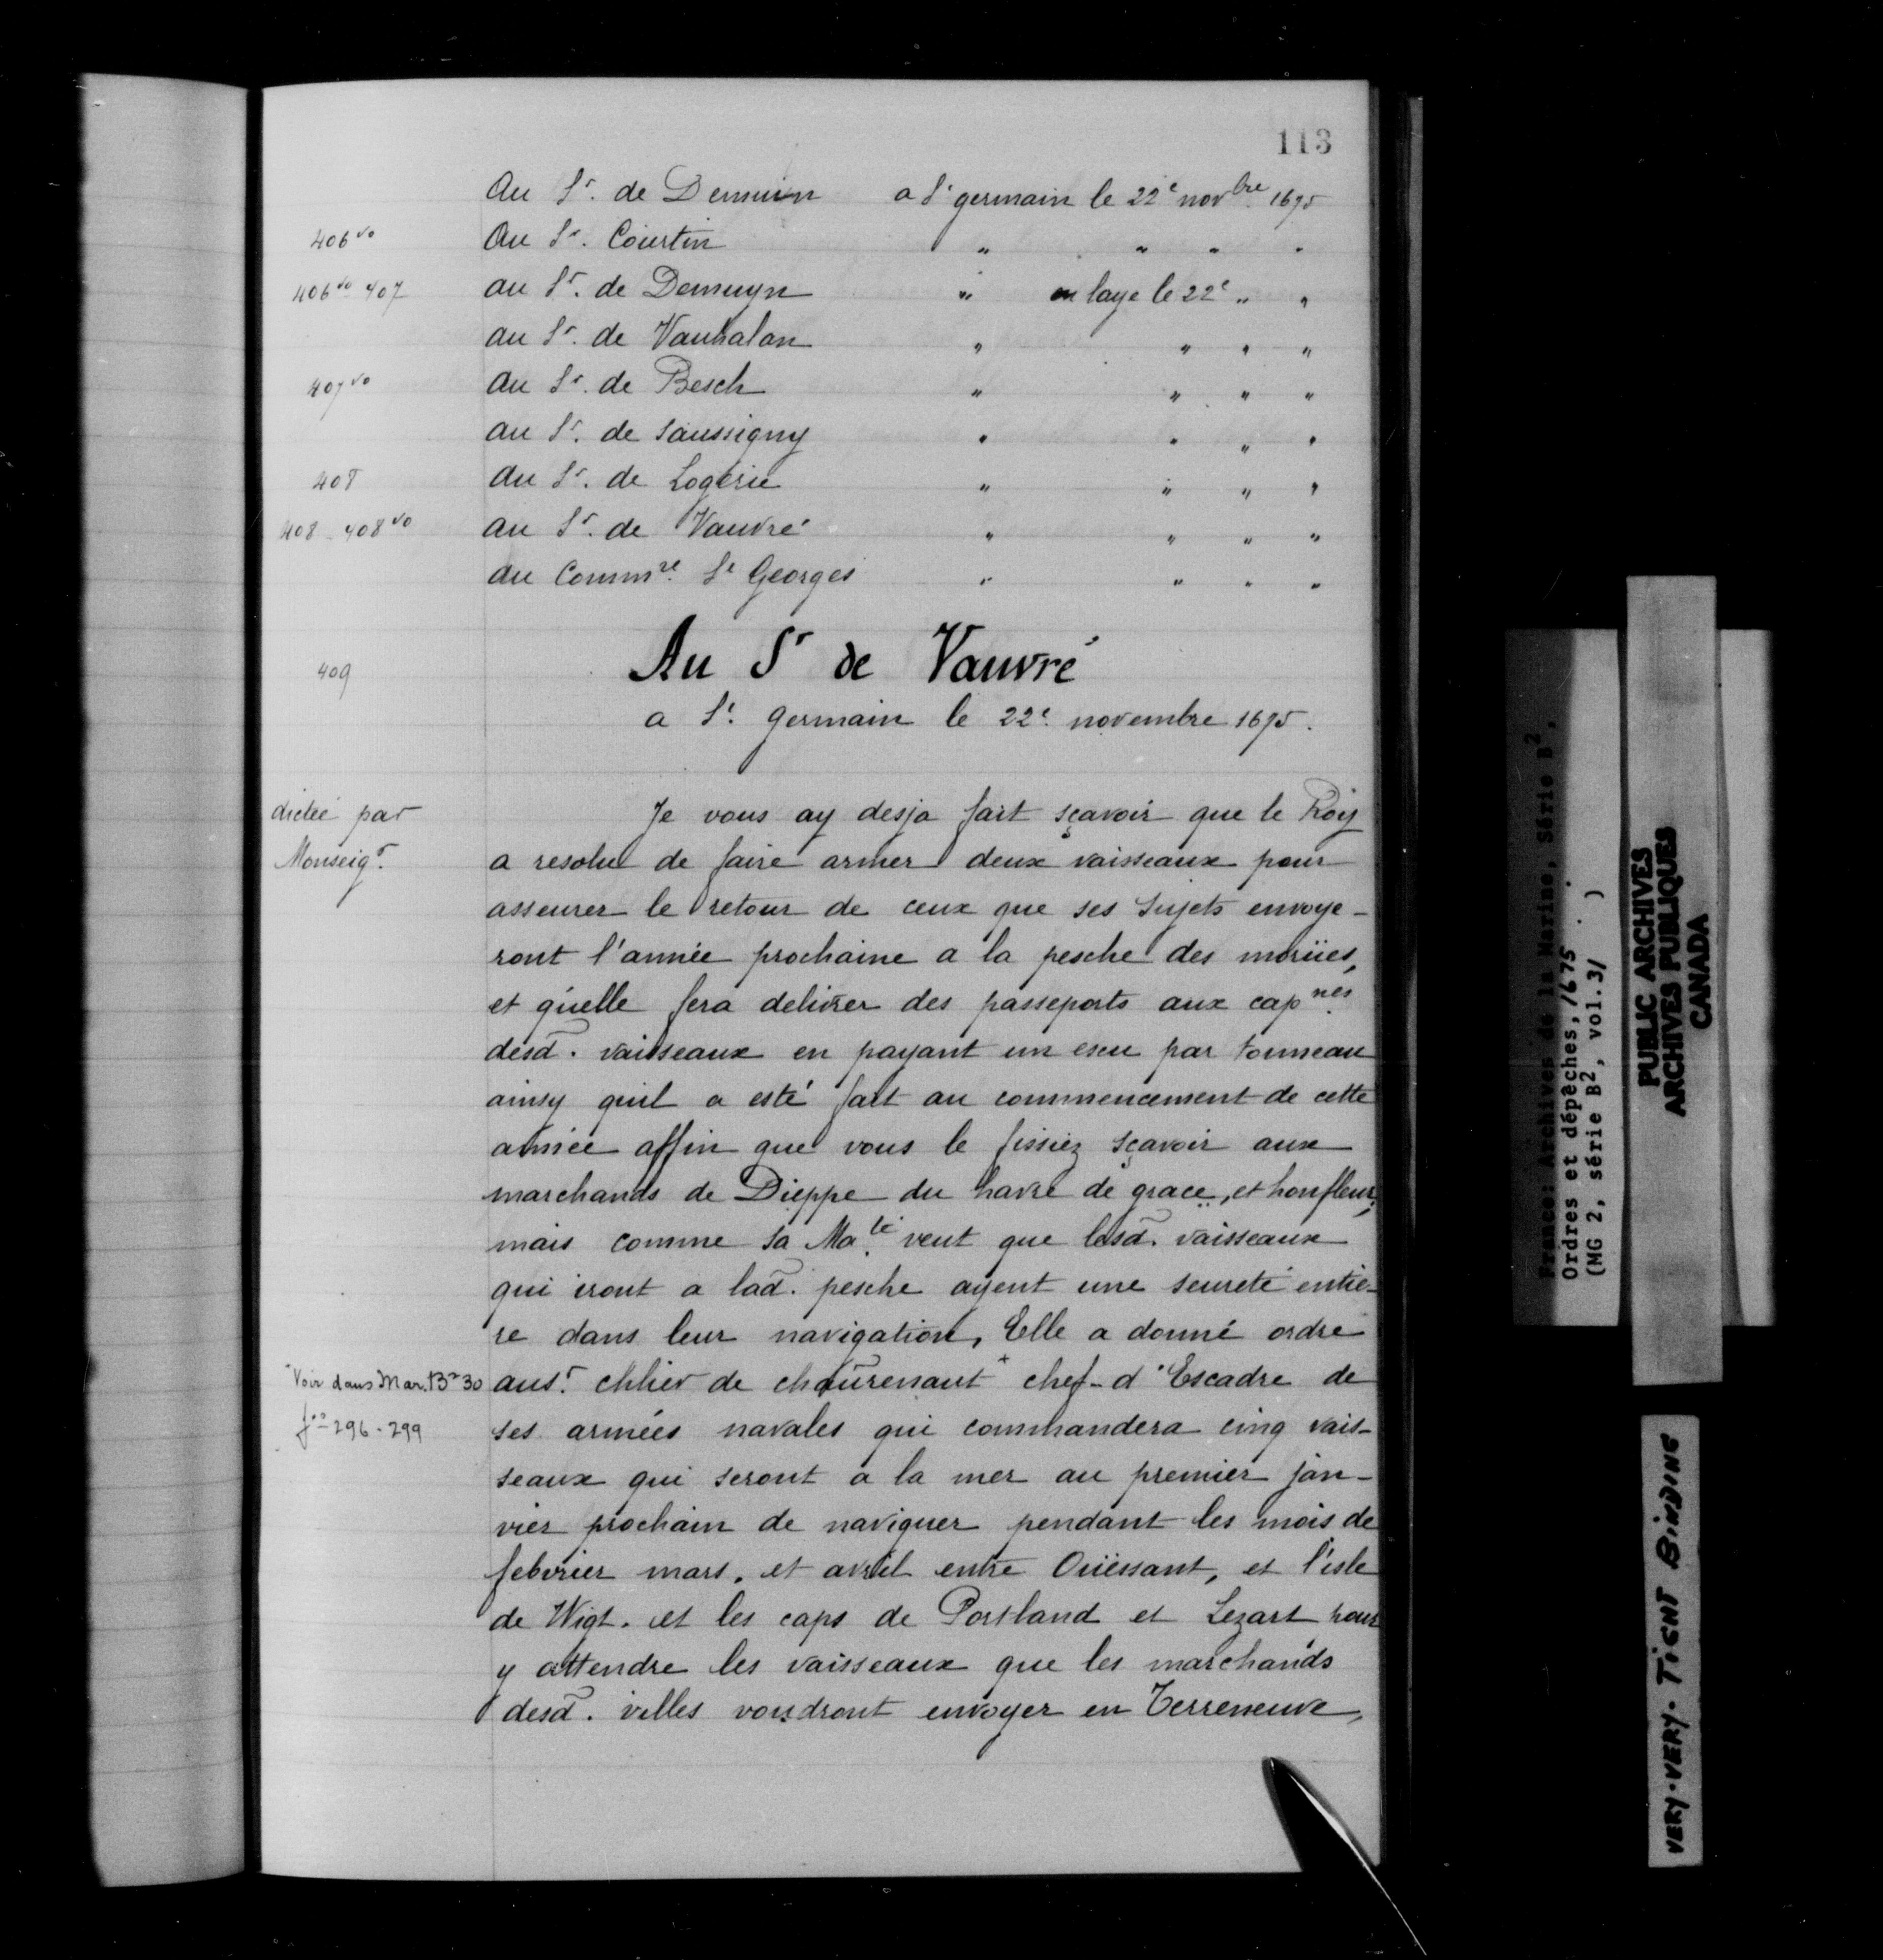 113
Au Sr. de Demuin a St germain le 22e novbre 1675
406vo Au Sr. Courtin " " " "
406vo 407 au Sr. de Demuyn " en laye le 22e " "
au Sr. de Vauhalan " " " "
407vo au Sr. de Besch " " " "
au Sr. de Saussigny " " " "
408 au Sr. de Logerie " " " "
408 - 408vo au Sr. de Vauvré " " " "
au Commre. St Georges " " " "
409 Au Sr de Vauvré
a St. germain le 22e. novembre 1675.
dicté par Je vous ay desja fait sçavoir que le Roy
Monseigr. a resolu de faire armer deux vaisseaux pour
asseurer le retour de ceux que ses Sujets envoye-
ront l'année prochaine a la pesche des moriies,
et qu'elle fera delivrer des passeports aux capnes.
desd. vaisseaux en payant un escu par tonneau
ainsy quil a esté fait au commencement de cette
année affin que vous le fissiez sçavoir aux
marchands de Dieppe du havre de grace, et honfleur;
mais comme Sa Maté. veut que lesd. vaisseaux
qui iront a lad. pesche ayent une seureté entie-
re dans leur navigation, Elle a donné ordre
Voir dans Mar. B2 30 aus.r chlier de chaûrenaut + chef-d'Escadre de
fos 296-299 ses armées navales qui commandera cinq vais-
seaux qui seront a la mer au premier jan-
vier prochain de naviguer pendant les mois de
febvrier mars, et avril entre Oüessant, et l'isle
de Wigt. et les caps de Portland et Lezart pour
y attendre les vaisseaux que les marchands
desd. villes voudront envoyer en Terreneuve,
France: Archives de la Marine, Série B2,
Ordres et dépêches, 1675 .
(MG 2, série B2, vol.31 )
PUBLIC ARCHIVES
ARCHIVES PUBLIQUES
CANADA
VERY-VERY-TIGHT BINDING